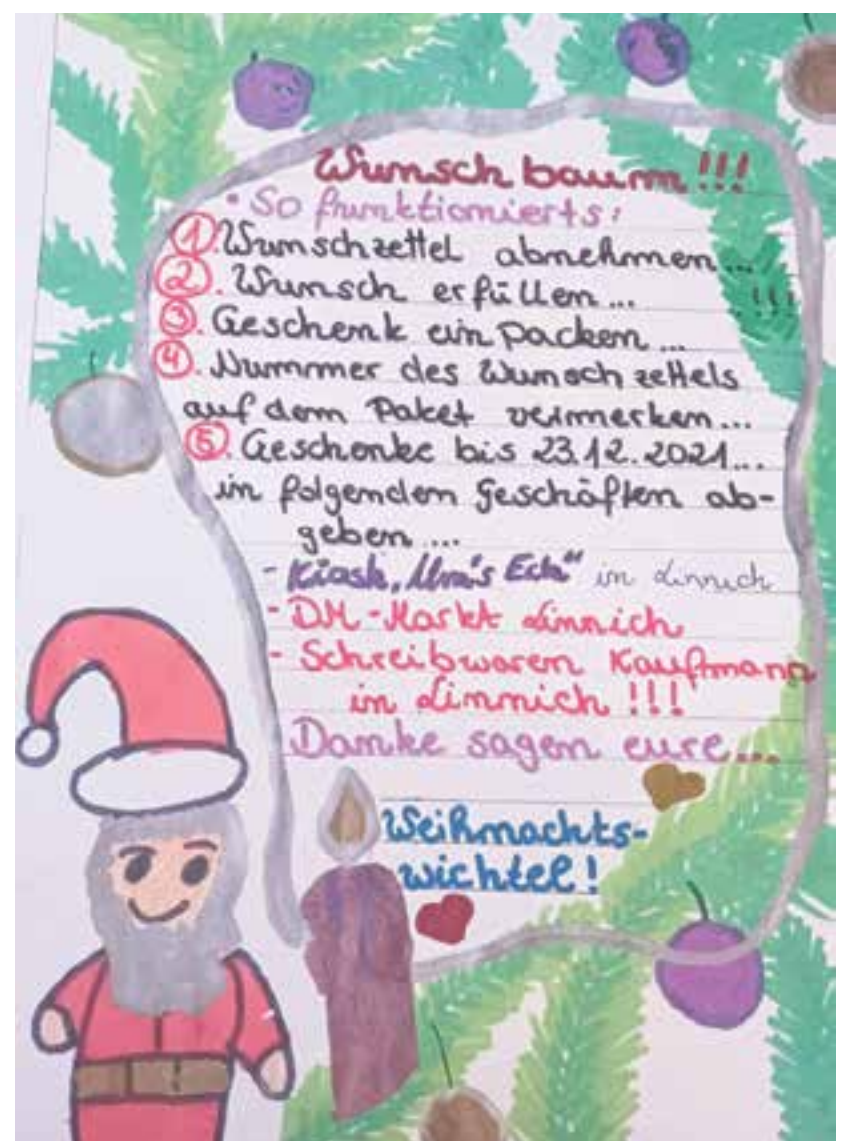 Wunschbaum!!!
• So funktionierts:
1. Wunschzettel abnehmen...
2. Wunsch erfüllen... !!!
3. Geschenk einpacken...
4. Nummer des Wunschzettels
auf dem Paket vermerken...
5. Geschenke bis 23.12.2021...
in folgenden Geschäften ab-
geben...
- Kiosk „ Eck“ in Linnich
- DM-Markt Linnich
- Schreibwaren Kaufmann
in Linnich !!!
Danke sagen eure...
Weihnachts-
wichtel!